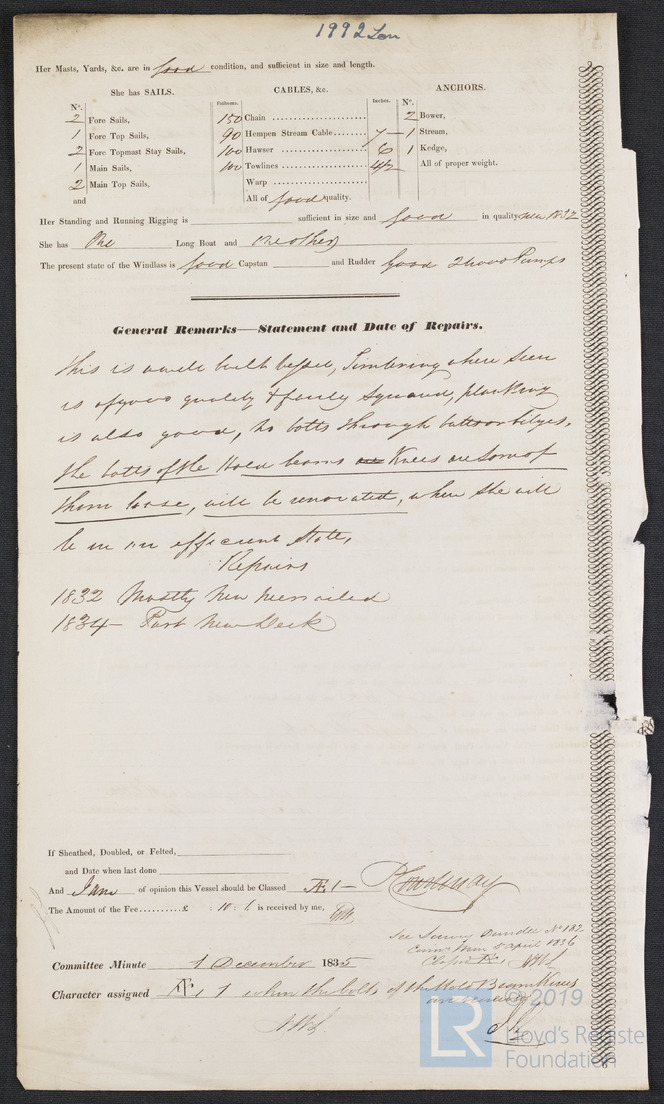 1992 Lon
Her Masts, Yards, &c. are in good condition, and sufficient in size and length.
She has SAILS.
Nº.
2 Fore Sails,
1 Fore Top Sails,
2 Fore Topmast Stay Sails,
1 Main Sails,
2 Main Top Sails,
and
CABLES, &c.
Fathoms. Inches.
150 Chain
90 Hempen Stream Cable 7
100 Hawser 6
100 Towlines 4½
Warp
All of good quality.
ANCHORS.
Nº.
2 Bower,
1 Stream,
1 Kedge,
All of proper weight.
Her Standing and Running Rigging is sufficient in size and good in quality new 1832
She has One Long Boat and one other
The present state of the Windlass is good Capstan and Rudder good 2 wood Pumps
General Remarks—Statement and Date of Repairs.
This is a well built vessel, Timbering where seen
is of good quality & fairly squared, planking
is also good, no bolts through butts or bilges,
the bolts of the Hold beams Knees are some of
them loose, will be renovated, when she will
be in an efficient state,
Repairs
1832 Mostly New
1834 Part New Deck
If Sheathed, Doubled, or Felted,
and Date when last done
And I am of opinion this Vessel should be Classed Æ 1
The Amount of the Fee £ : 10 : is received by me,
See Survey Dundee Nº 182
April 1836
Committee Minute 1 December 1835
Character assigned Æ 1 when the bolts of the Hold Beam Knees
are
© 2019
LR
Lloyd's Register
Foundation